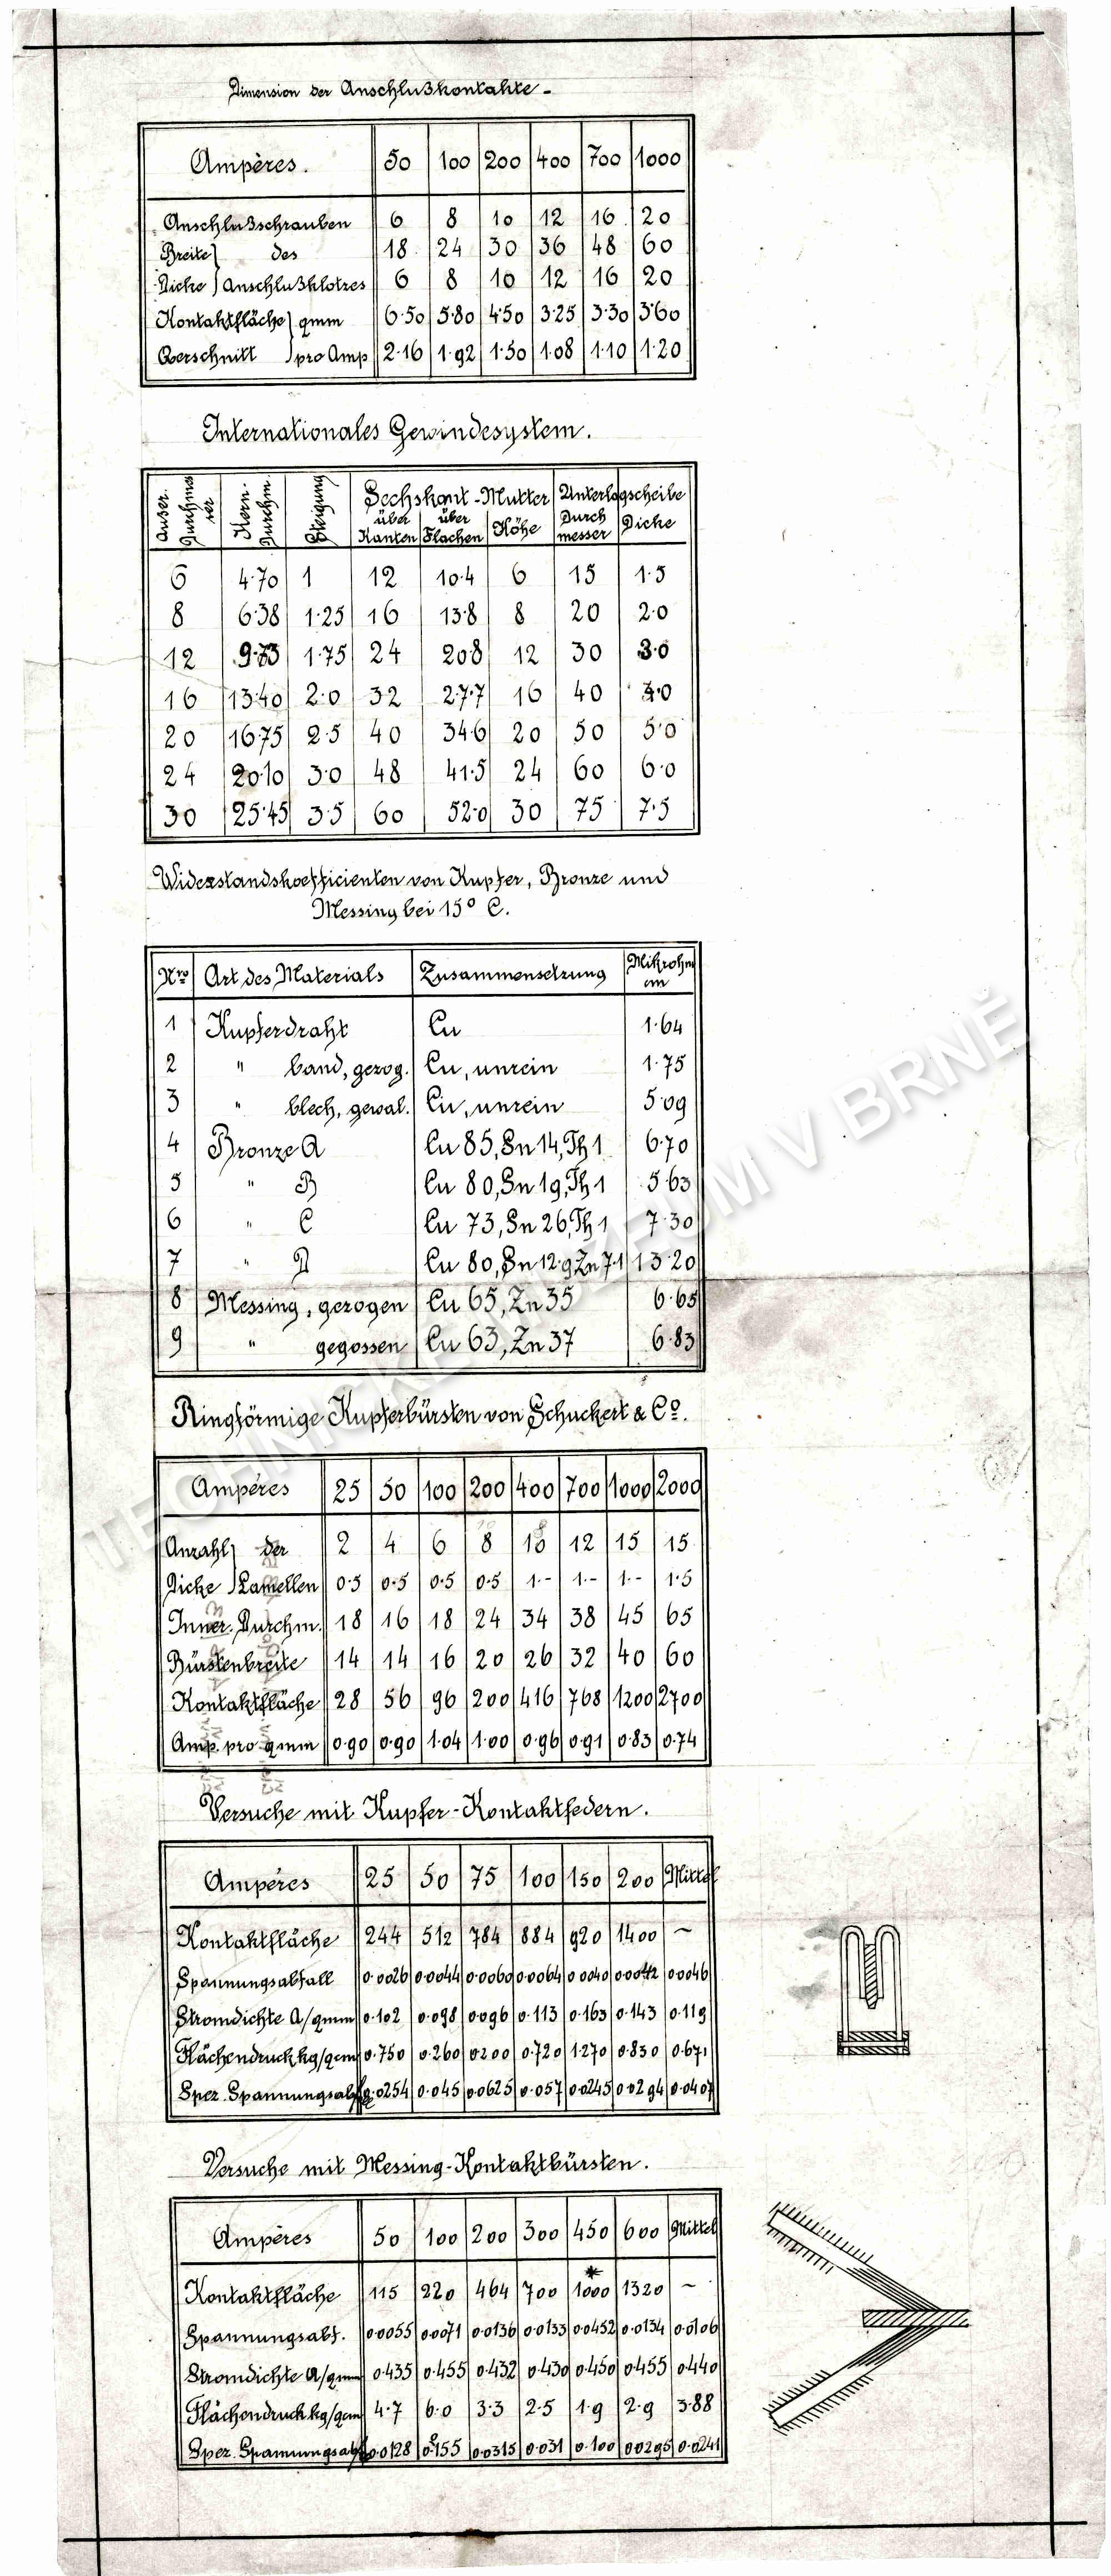 Dimension der Anschlußkontakte -
Ampères. 50 100 200 400 700 1000
Anschlußschrauben 6 8 10 12 16 20
Breite } des 18 24 30 36 48 60
Dicke } Anschlußklotzes 6 8 10 12 16 20
Kontaktfläche } qmm 6·50 5·80 4·50 3·25 3·30 3·60
Querschnitt } pro Amp 2·16 1·92 1·50 1·08 1·10 1·20
Internationales Gewindesystem.
Äuser. Durchmesser Kern-Durchm. Steigung Sechskant-Mutter Unterlagscheibe
über Kanten über Flachen Höhe Durchmesser Dicke
6 4·70 1 12 10·4 6 15 1·5
8 6·38 1·25 16 13·8 8 20 2·0
12 9·73 1·75 24 20·8 12 30 3·0
16 13·40 2·0 32 27·7 16 40 4·0
20 16·75 2·5 40 34·6 20 50 5·0
24 20·10 3·0 48 41·5 24 60 6·0
30 25·45 3·5 60 52·0 30 75 7·5
Widerstandskoefficienten von Kupfer, Bronze und
Messing bei 15° C.
Nro Art des Materials Zusammensetzung Mikrohm cm
1 Kupferdraht Cu 1·64
2 " band, gezog. Cu, unrein 1·75
3 " blech, gewal. Cu, unrein 5·09
4 Bronze A Cu 85, Sn 14, Ph 1 6·70
5 " B Cu 80, Sn 19, Ph 1 5·63
6 " C Cu 73, Sn 26, Ph 1 7·30
7 " D Cu 80, Sn 12·9 Zn 7·1 13·20
8 Messing, gezogen Cu 65, Zn 35 6·65
9 " gegossen Cu 63, Zn 37 6·83
Ringförmige Kupferbürsten von Schuckert & Co.
Ampéres 25 50 100 200 400 700 1000 2000
Anzahl } der 2 4 6 8 10 12 15 15
Dicke } Lamellen 0·5 0·5 0·5 0·5 1·- 1·- 1·- 1·5
Inner. Durchm. 18 16 18 24 34 38 45 65
Bürstenbreite 14 14 16 20 26 32 40 60
Kontaktfläche 28 56 96 200 416 768 1200 2700
Amp. pro qmm 0·90 0·90 1·04 1·00 0·96 0·91 0·83 0·74
Versuche mit Kupfer-Kontaktfedern.
Ampéres 25 50 75 100 150 200 Mittel
Kontaktfläche 244 512 784 884 920 1400 ~
Spannungsabfall 0·0026 0·0044 0·0060 0·0064 0·0040 0·0042 0·0046
Stromdichte A/qmm 0·102 0·098 0·096 0·113 0·163 0·143 0·119
Flächendruck kg/qcm 0·750 0·260 0·200 0·720 1·270 0·830 0·671
Spez. Spannungsabf. 0·0254 0·045 0·0625 0·057 0·0245 0·0294 0·0407
Versuche mit Messing-Kontaktbürsten.
Ampères 50 100 200 300 450 600 Mittel
Kontaktfläche 115 220 464 700 1000* 1320 ~
Spannungsabf. 0·0055 0·0071 0·0136 0·0133 0·0452 0·0134 0·0106
Stromdichte A/qmm 0·435 0·455 0·432 0·430 0·450 0·455 0·440
Flächendruck kg/qcm 4·7 6·0 3·3 2·5 1·9 2·9 3·88
Spez. Spannungsabf. 0·0128 0·0155 0·0315 0·031 0·100 0·0295 0·0241
TECHNICKÉ MUZEUM V BRNĚ